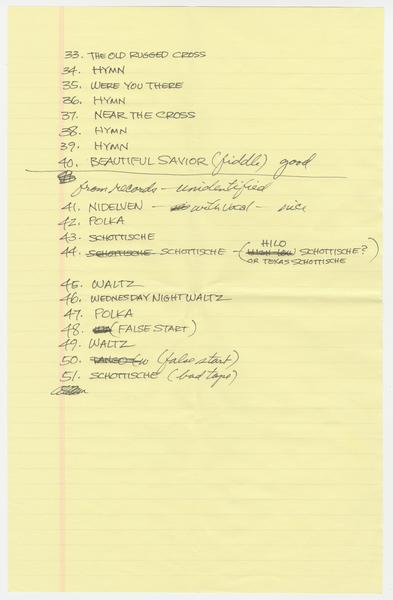 33. THE OLD RUGGED CROSS
34. HYMN
35. WERE YOU THERE
36. HYMN
37. NEAR THE CROSS
38. HYMN
39. HYMN
40. BEAUTIFUL SAVIOR (fiddle) good
from records - unidentified
41. NIDELVEN - with vocal - nice
42. POLKA
43. SCHOTTISCHE
44. SCHOTTISCHE SCHOTTISCHE - (HIGH LOW HILO SCHOTTISCHE?
OR TEXAS SCHOTTISCHE)
45. WALTZ
46. WEDNESDAY NIGHT WALTZ
47. POLKA
48. (FALSE START)
49. WALTZ
50. TANGO (false start)
51. SCHOTTISCHE (bad tape)